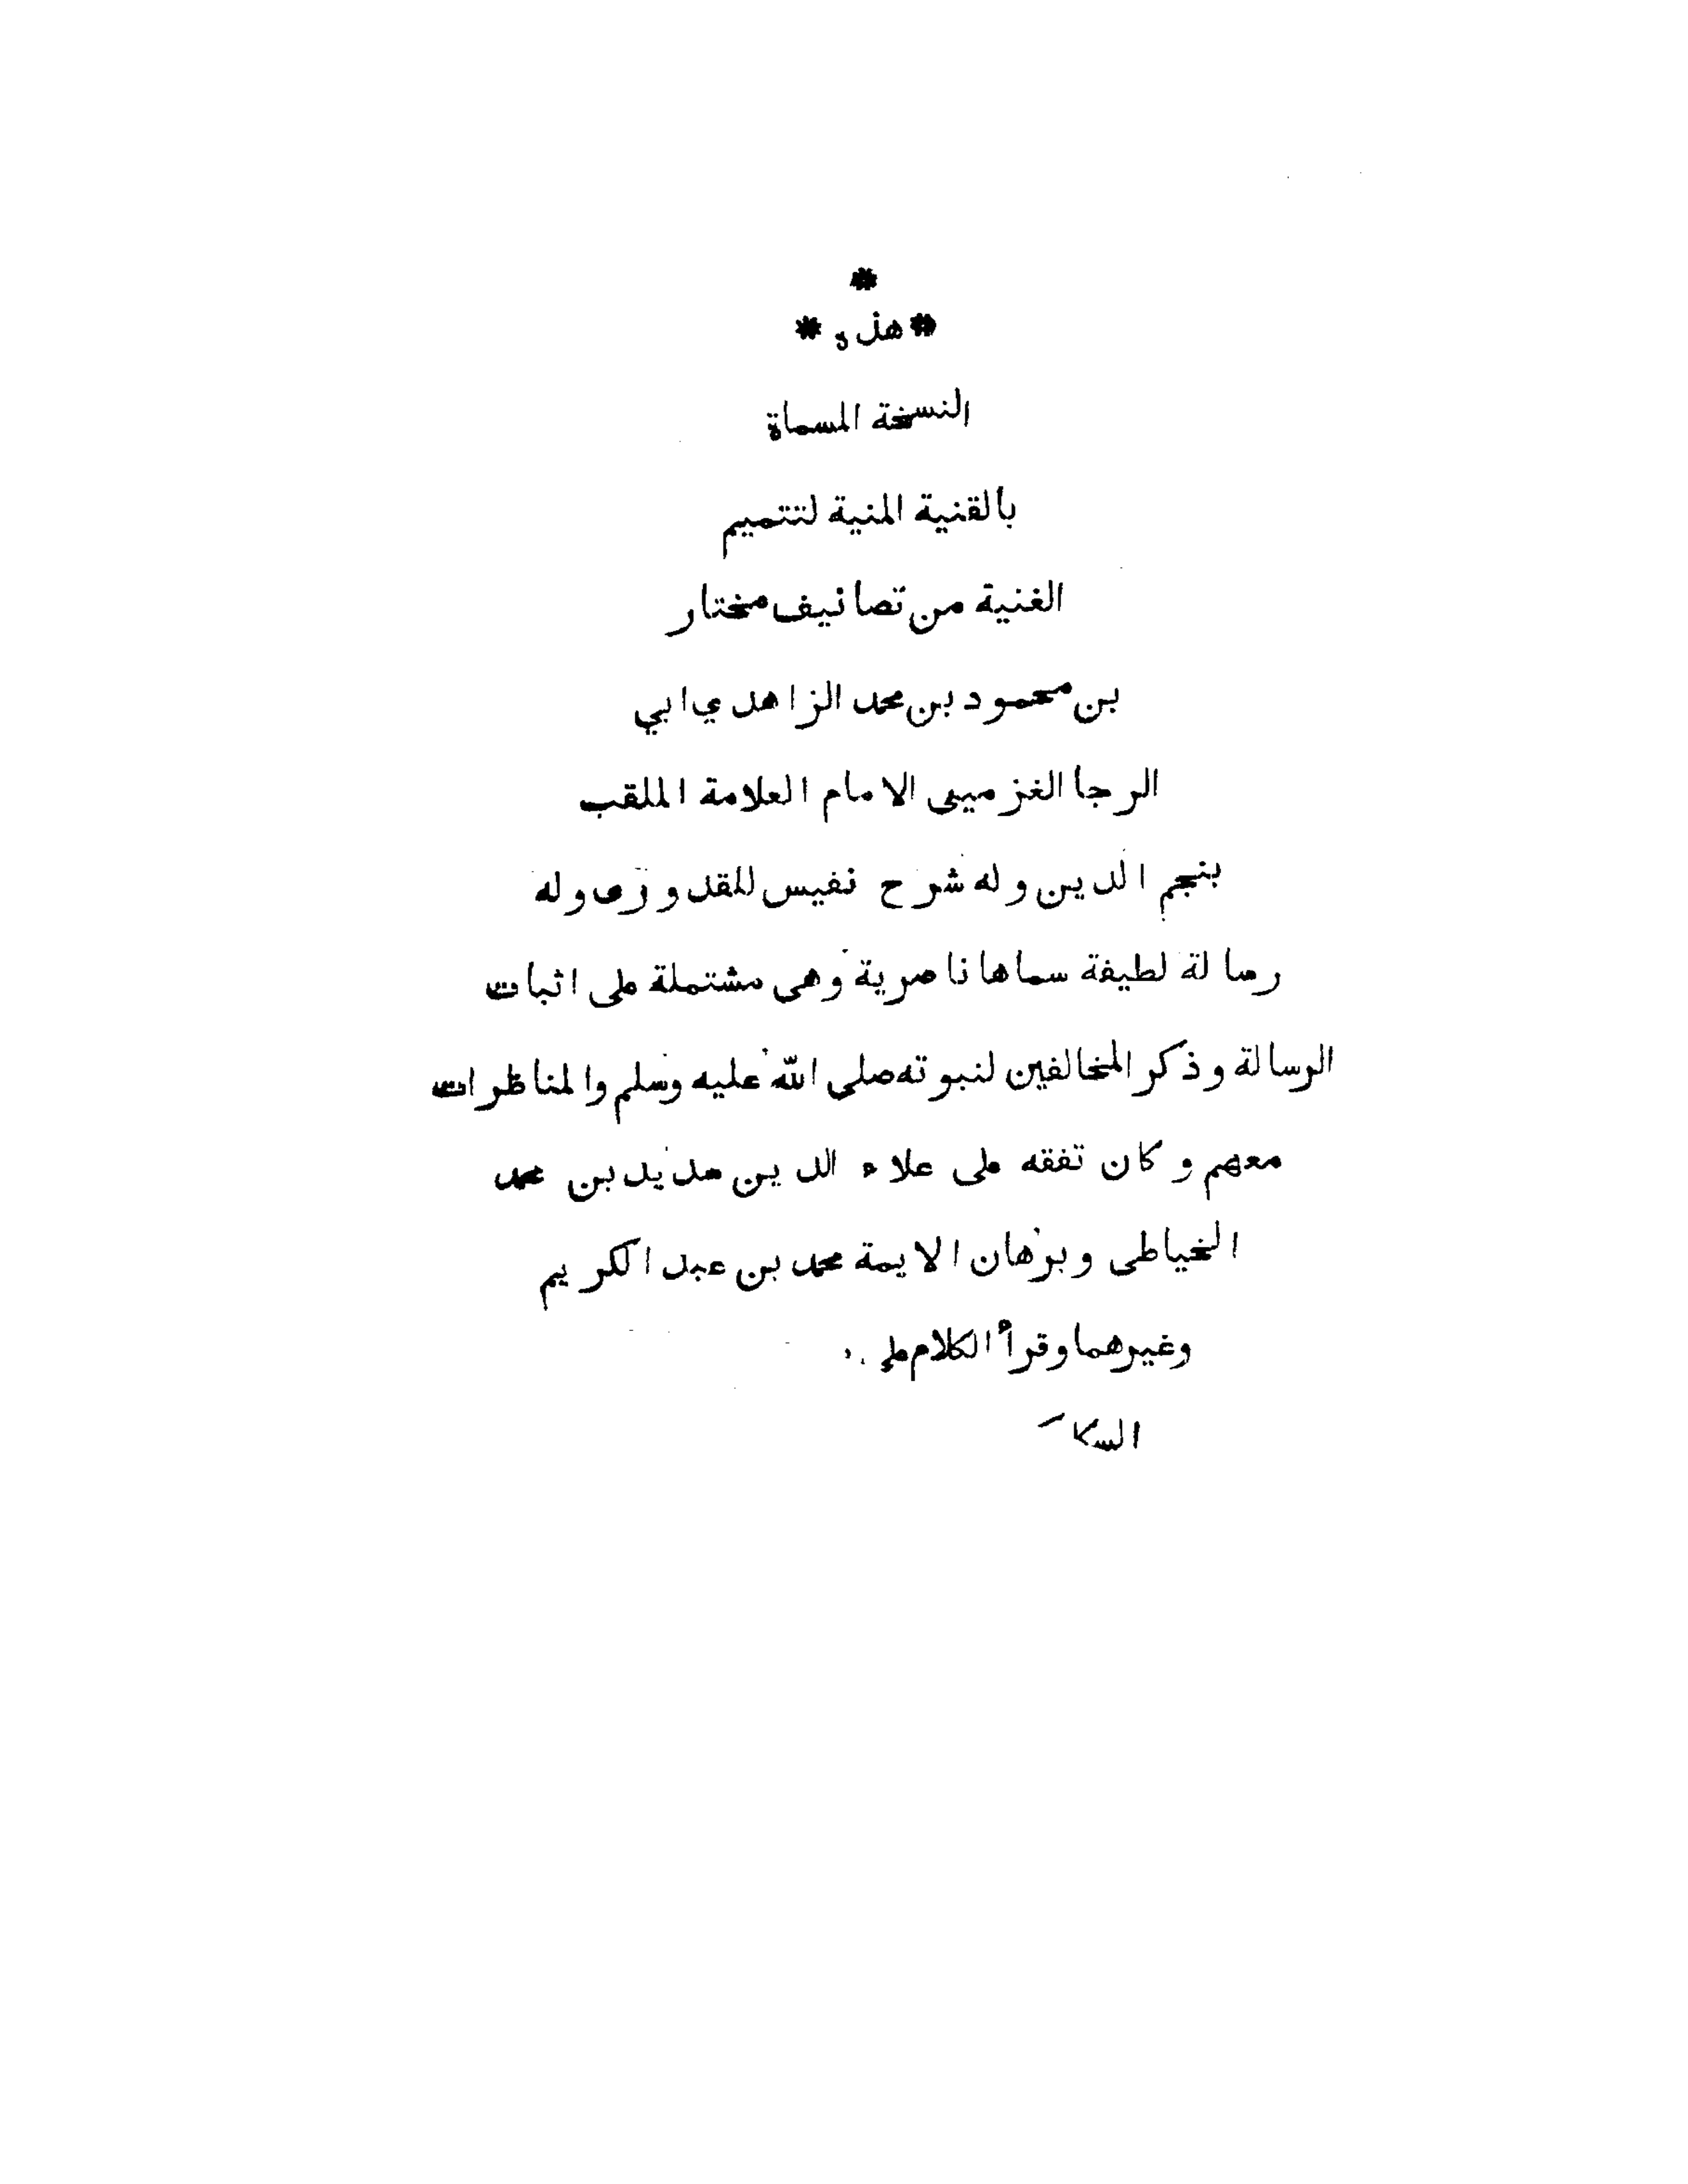 *
* هذه *
النسخة المسماة
بالقنية المنية لتتميم
الغنية من تصانيف مختار
بن محمود بن محمد الزاهدي ابي
الرجا الغزميني الامام العلامة الملقب
بنجم الدين وله شرح نفيس للقدوري وله
رسالة لطيفة سماها ناصرية وهى مشتملة على اثبات
الرسالة وذكر المخالفين لنبوته صلى الله عليه وسلم والمناظرات
معهم وكان تفقه على علاء الدين سديد بن محمد
الخياطى وبرهان الايمة محمد بن عبد الكريم
وغيرهما وقرأ الكلام